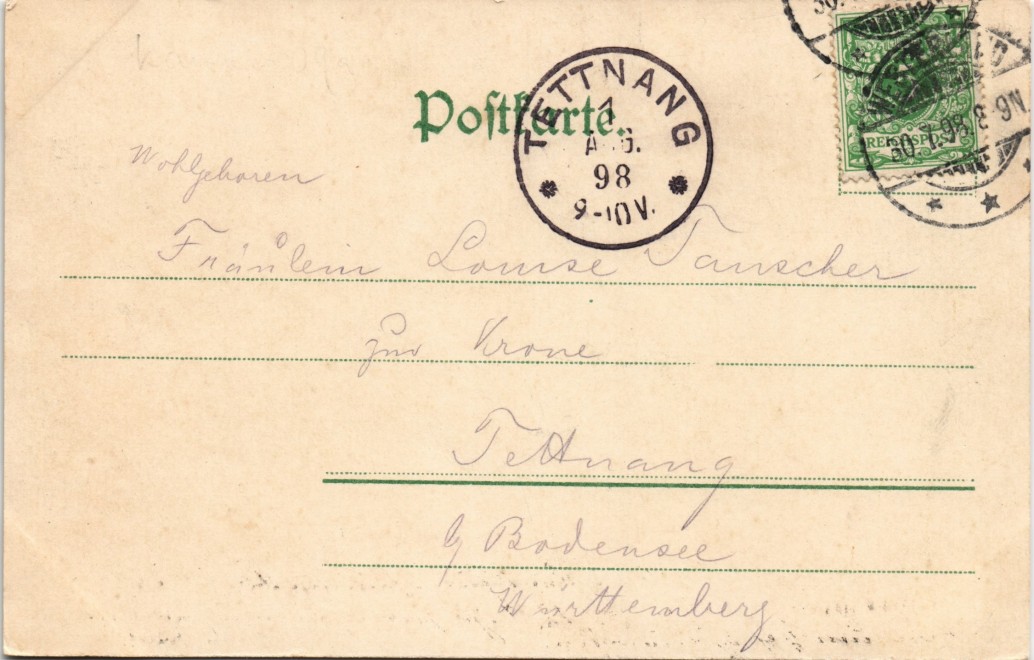 Postkarte.
TETTNANG
1
AUG.
98
9-10V.
REICHSPOST
30.7.98. 8-9N.
Wohlgeboren
Fräulein Louise Tauscher
zur Krone
Tettnang
Bodensee
Württemberg